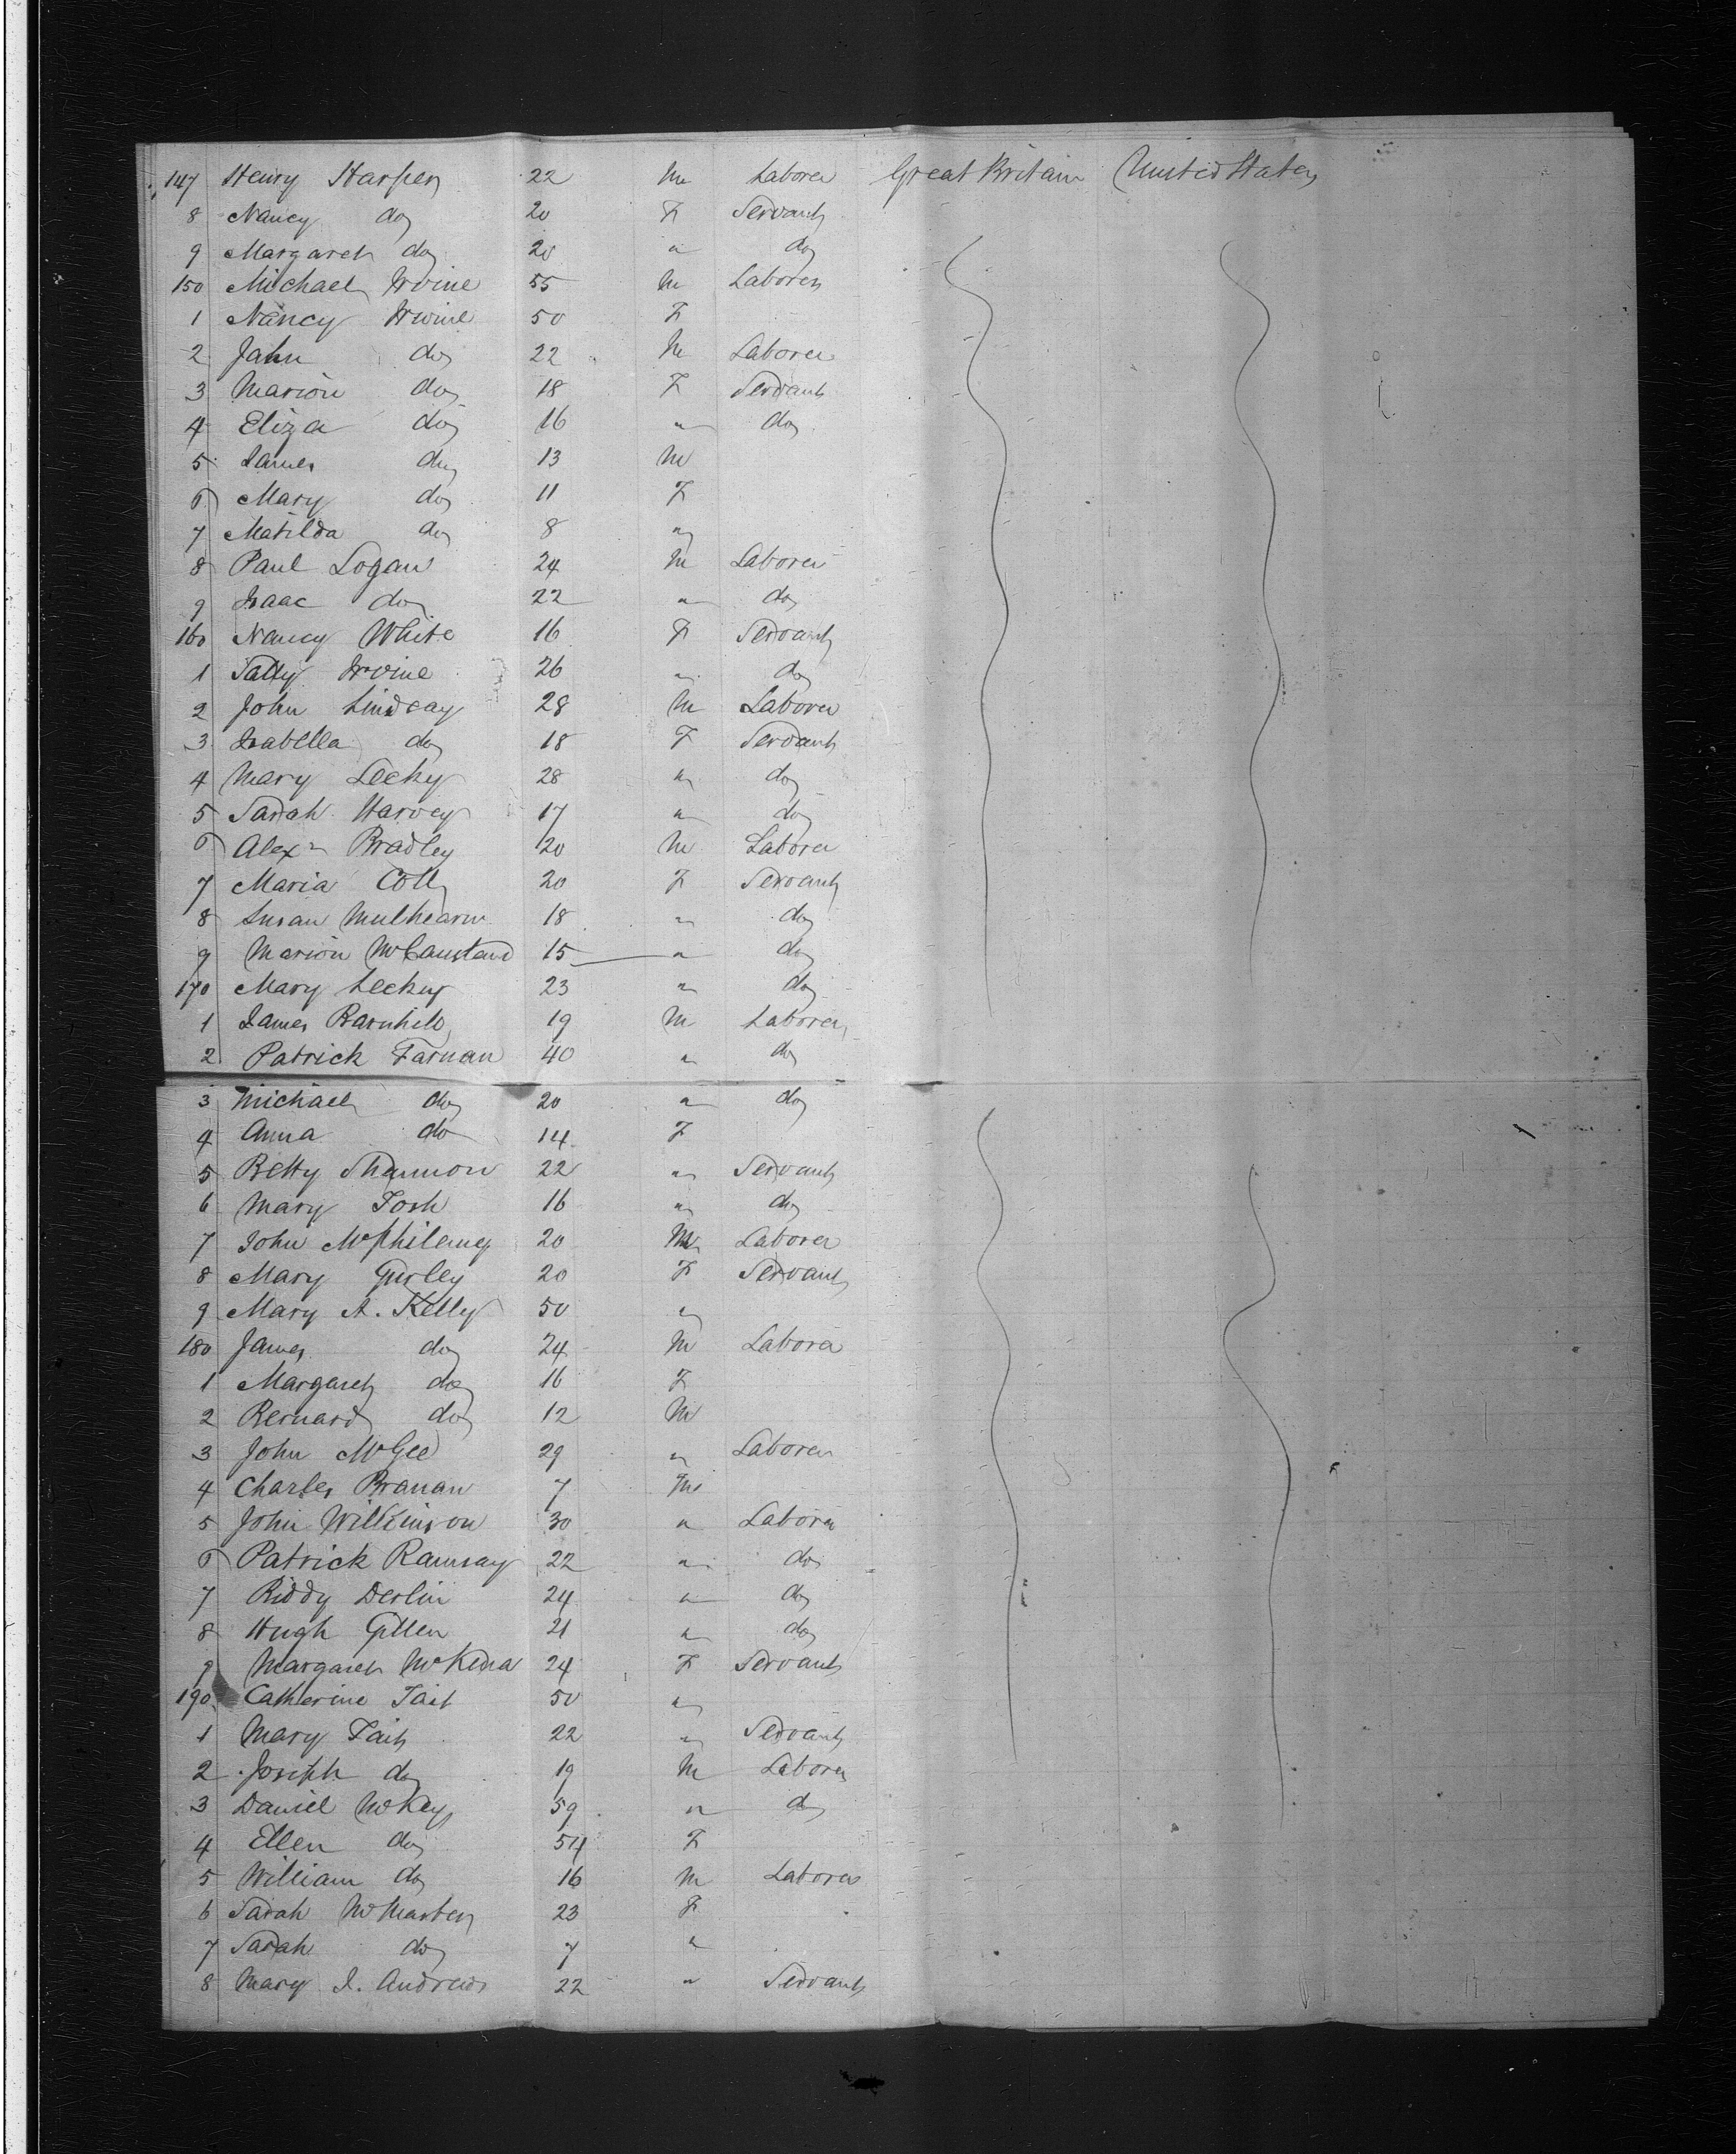 147 Henry Harper 22 M Laborer Great Britain United States
8 Nancy do 20 F Servant
9 Margaret do 20 " do
150 Michael Irvine 55 M Laborer
1 Nancy Irvine 50 F
2 John do 22 M Laborer
3 Marion do 18 F Servant
4 Eliza do 16 " do
5 James do 13 M
6 Mary do 11 F
7 Matilda do 8 "
8 Paul Logan 24 M Laborer
9 Isaac do 22 " do
160 Nancy White 16 F Servant
1 Sally Irvine 26 " do
2 John Lindsay 28 M Laborer
3 Isabella do 18 F Servant
4 Mary Lecky 28 " do
5 Sarah Harvey 17 " do
6 Alexr Bradley 20 M Laborer
7 Maria Coll 20 F Servant
8 Susan Mulhearn 18 " do
9 Marion McCausland 15 " do
170 Mary Leckey 23 " do
1 James Barnhill 19 M Laborer
2 Patrick Farnan 40 " do
3 Michael do 20 " do
4 Anna do 14 F
5 Betty Shannon 22 " Servant
6 Mary Tosh 16 " do
7 John McPhilemy 20 M Laborer
8 Mary Gurley 20 F Servant
9 Mary A. Kelly 50 "
180 James do 24 M Laborer
1 Margaret do 16 F
2 Bernard do 12 M
3 John McGee 29 " Laborer
4 Charles Branan 7 M
5 John Wilkinson 30 " Laborer
6 Patrick Ramsay 22 " do
7 Biddy Devlin 24 " do
8 Hugh Gillen 21 " do
9 Margaret McKena 24 F Servant
190 Catherine Tait 50 "
1 Mary Tait 22 " Servant
2 Joseph do 19 M Laborer
3 Daniel McKey 59 " do
4 Ellen do 54 F
5 William do 16 M Laborer
6 Sarah McMaster 23 F
7 Sarah do 7 "
8 Mary J. Andrews 22 " Servant